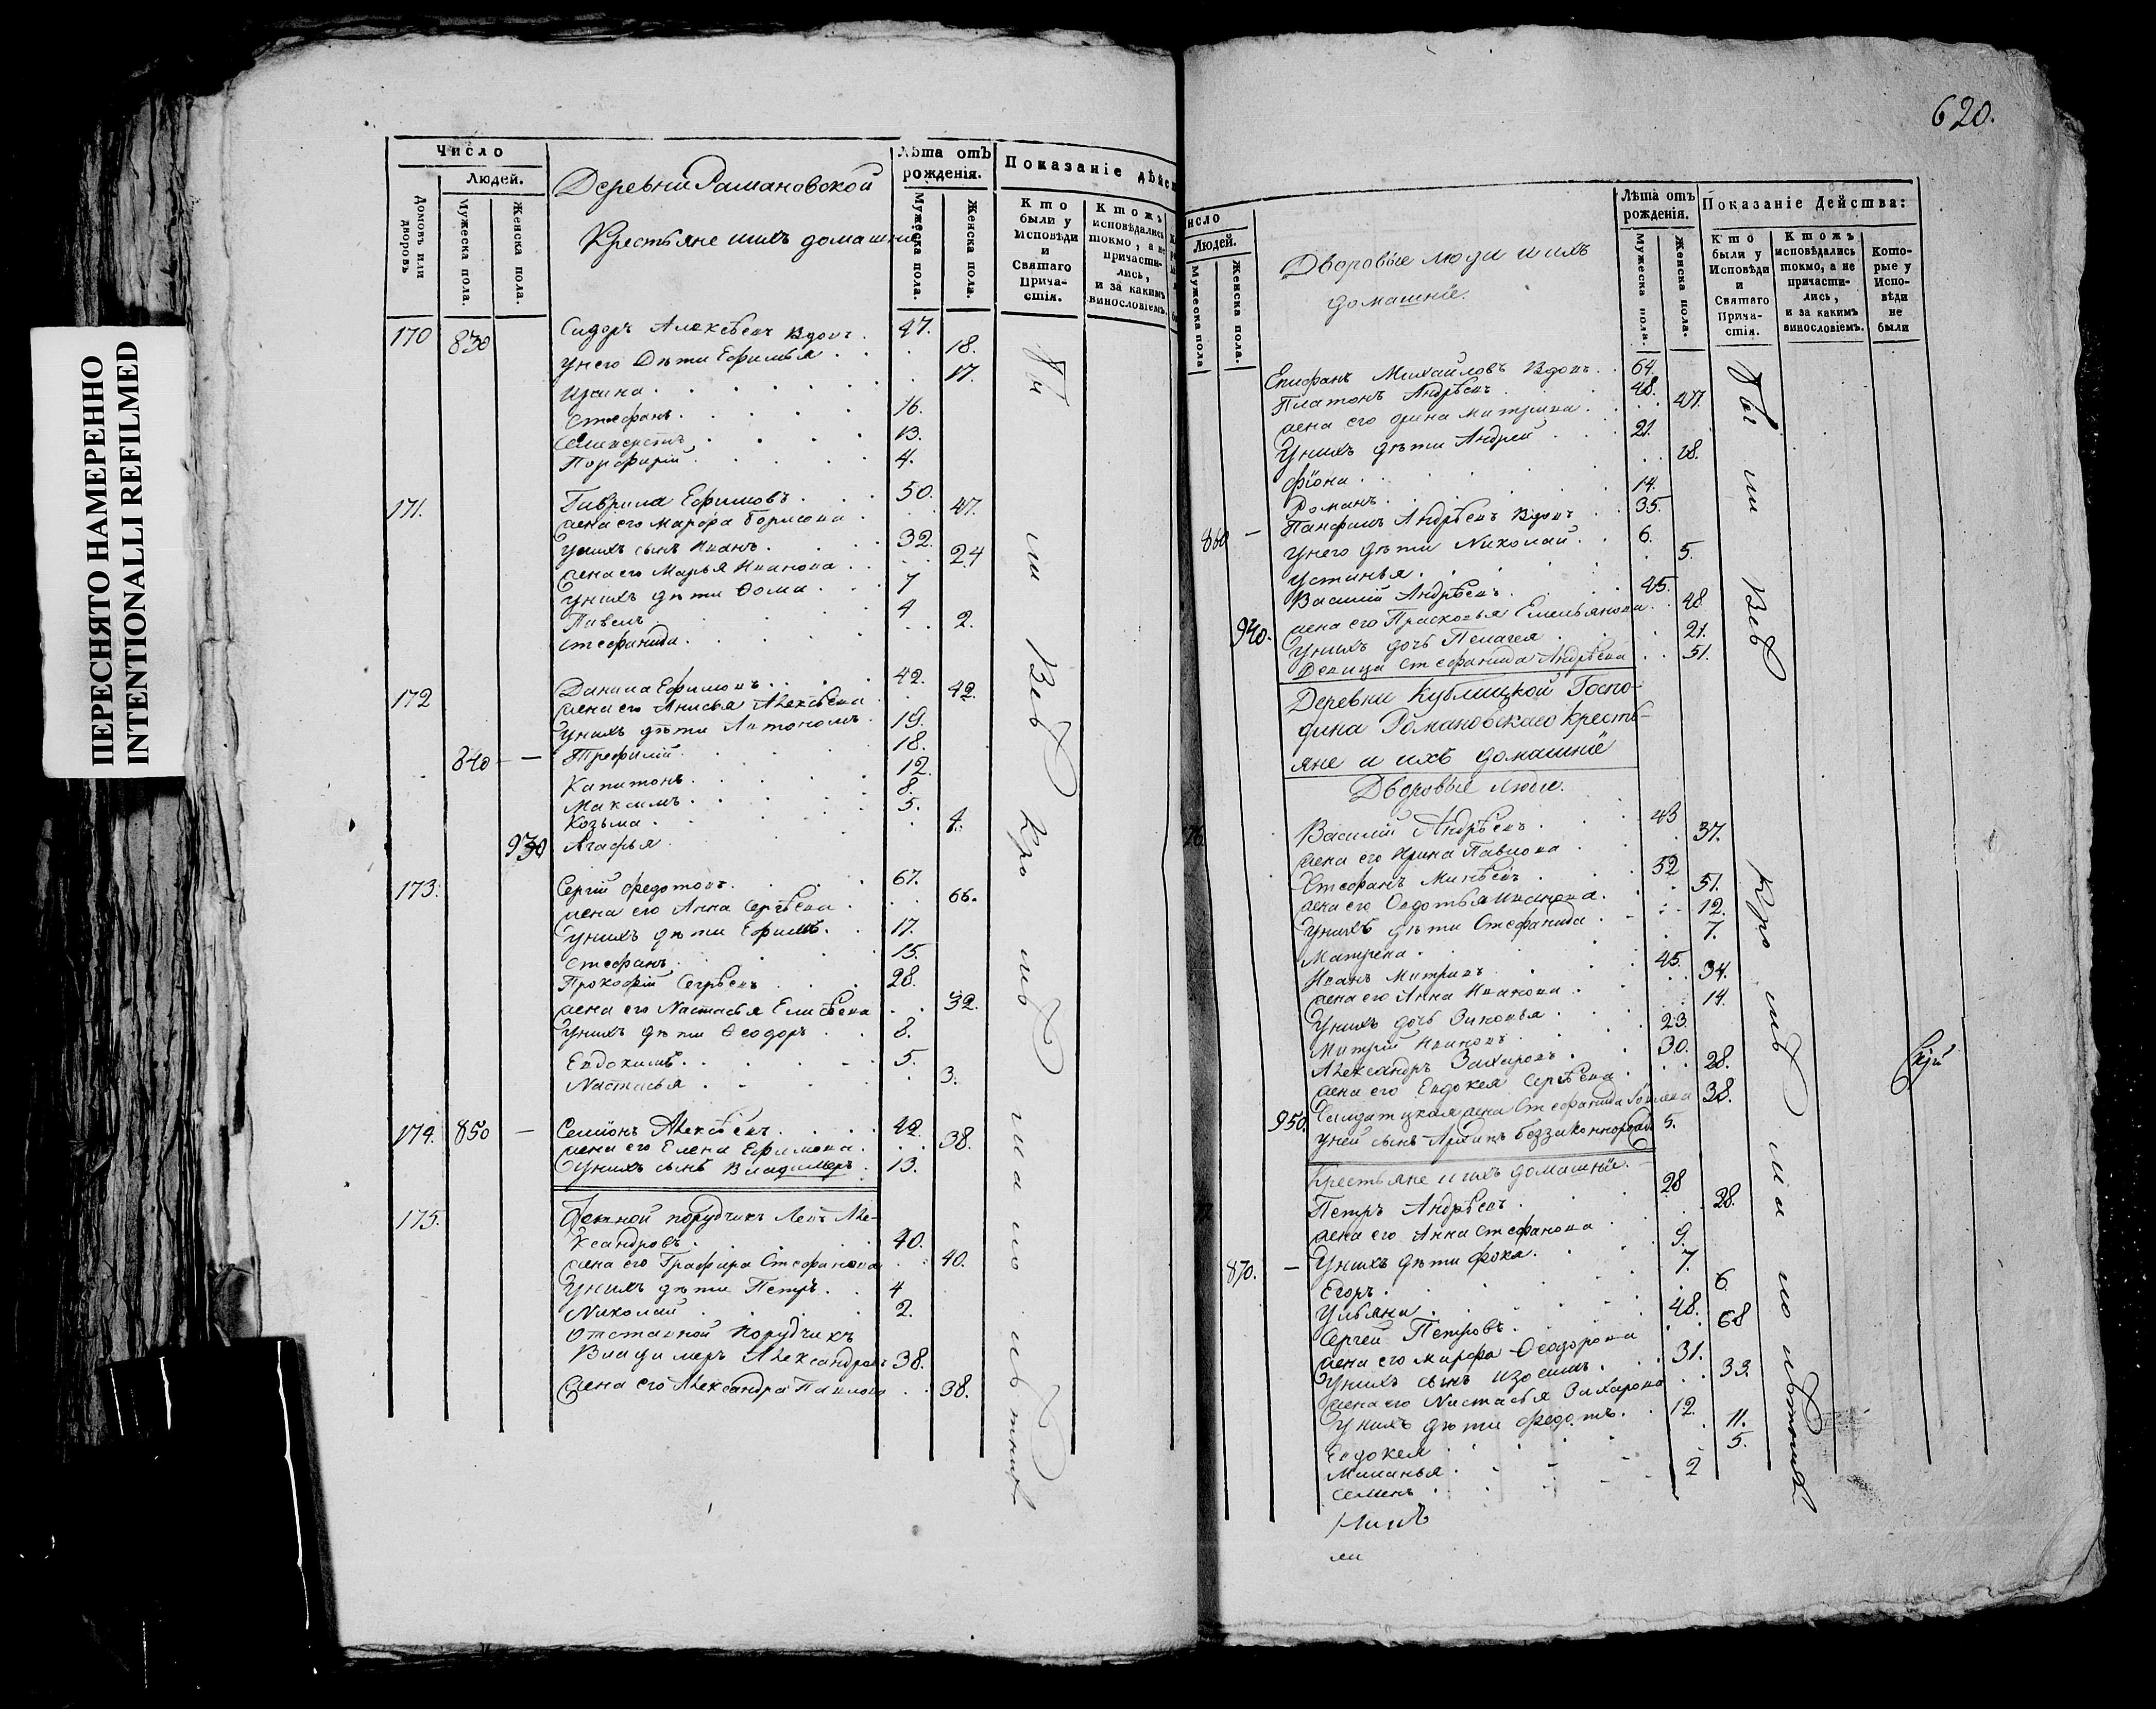 ПЕРЕСНЯТО НАМЕРЕННО
INTENTIONALLI REFILMED
Число
Людей.
Домовъ или дворовъ
Мужеска пола.
Женска пола.
Деревни Рамановской
Крестьяне и ихъ домашніе
Лѣта отъ рожденія.
Мужеска пола.
Женска пола.
Показаніе дѣйс
Кто были у Исповѣди и Святаго Прича-стія.
Ктожъ исповѣдались токмо, а не причасти-лись, и за какимъ винословіемъ.
170 830 Сидоръ Алексѣевъ вдовъ 47.
У него дѣти Ефимья 18.
Ирина 17.
Стефанъ 16.
13.
Порфирій 4.
171. Гаврила Ефимовъ 50.
жена его Марфа Борисова 47.
У нихъ сынъ Иванъ 32.
жена его Марья Иванова 24
У нихъ дѣти Ѳома 7
Павелъ 4
Стефанида 2.
172 Данила Ефимовъ 42.
жена его Анисья Алексѣева 42.
У нихъ дѣти Автономъ 19.
840 — Трефилій 18.
Капитонъ 12.
Максимъ 8.
Козьма 5.
930 Агафья 4.
173. Сергій Федотовъ 67.
жена его Анна Сергѣева 66.
У нихъ дѣти Ефимъ 17.
Стефанъ 15.
Прокофій Сергѣевъ 28.
жена его Настасья Елисѣева 32.
У нихъ дѣти Ѳеодоръ 8.
Евдокимъ 5.
Настасья 3.
174. 850 — Семіонъ Алексѣевъ 42.
жена его Елена Ефимова 38.
У нихъ сынъ Владимеръ 13.
175. порудчикъ Левъ Але-
ксандровъ 40.
жена его Графира Стефанова 40.
У нихъ дѣти Петръ 4
Николай 2.
Отставной порудчикъ
Владимеръ Александровъ 38.
жена его Александра Павлова 38.
бы ли Всѣ кро мѣ ма ло лѣтнихъ
620.
исло
Людей.
Мужеска пола
Женска пола.
Дворовые люди и ихъ
домашніе.
Лѣта отъ рожденія.
Мужеска пола.
Женска пола.
Показаніе Действа:
Кто были у Исповѣди и Святаго Прича-стія.
Ктожъ исповѣдались токмо, а не причасти-лись, и за какимъ винословіемъ.
Кото-рые у Испо-вѣди не были
Епифанъ Михайловъ вдовъ 64.
Платонъ Андрѣевъ 48.
жена его Ирина Митриева 47.
У нихъ дѣти Андрей 21.
Фіона 18.
Романъ 14.
860 — Панфилъ Андрѣевъ вдовъ 35.
У него дѣти Николай 6.
Устинья 5.
Василій Андрѣевъ 45.
жена его Прасковья Емельянова 48
940. У нихъ дочь Пелагея 21.
Девица Стефанида Андрѣева 51.
Деревни Кублицкой Госпо-
дина Романовскаго Кресть-
яне и ихъ домашніе
Дворовые люди.
76. Василій Андрѣевъ 43
жена его Ирина Павлова 37.
Стефанъ Минѣевъ 52
жена его Федотья Иванова 51.
У нихъ дѣти Стефанида 12.
Матрена 7.
Иванъ Митриевъ 45.
жена его Анна Иванова 34.
У нихъ дочь Зиновья 14.
Митрій Ивановъ 23.
Александръ Захаровъ 30.
жена его Евдокея Сергѣева 28.
950. Салдатцкая жена Стефанида 38.
У ней сынъ 5.
Крестьяне и ихъ домашніе.
Петръ Андрѣевъ 28
жена его Анна Стефанова 28.
У нихъ дѣти Фока 9.
870. — Егоръ 7.
Ульяна 6
Сергей Петровъ 48.
жена его Марфа Ѳеодорова 68
У нихъ сынъ Изосимъ 31.
жена его Настасья Захарова 33.
У нихъ дѣти Федотъ 12.
Евдокея 11.
Миланья 5.
Семенъ 2
бы ли Всѣ кро мѣ ма ло лѣтнихъ